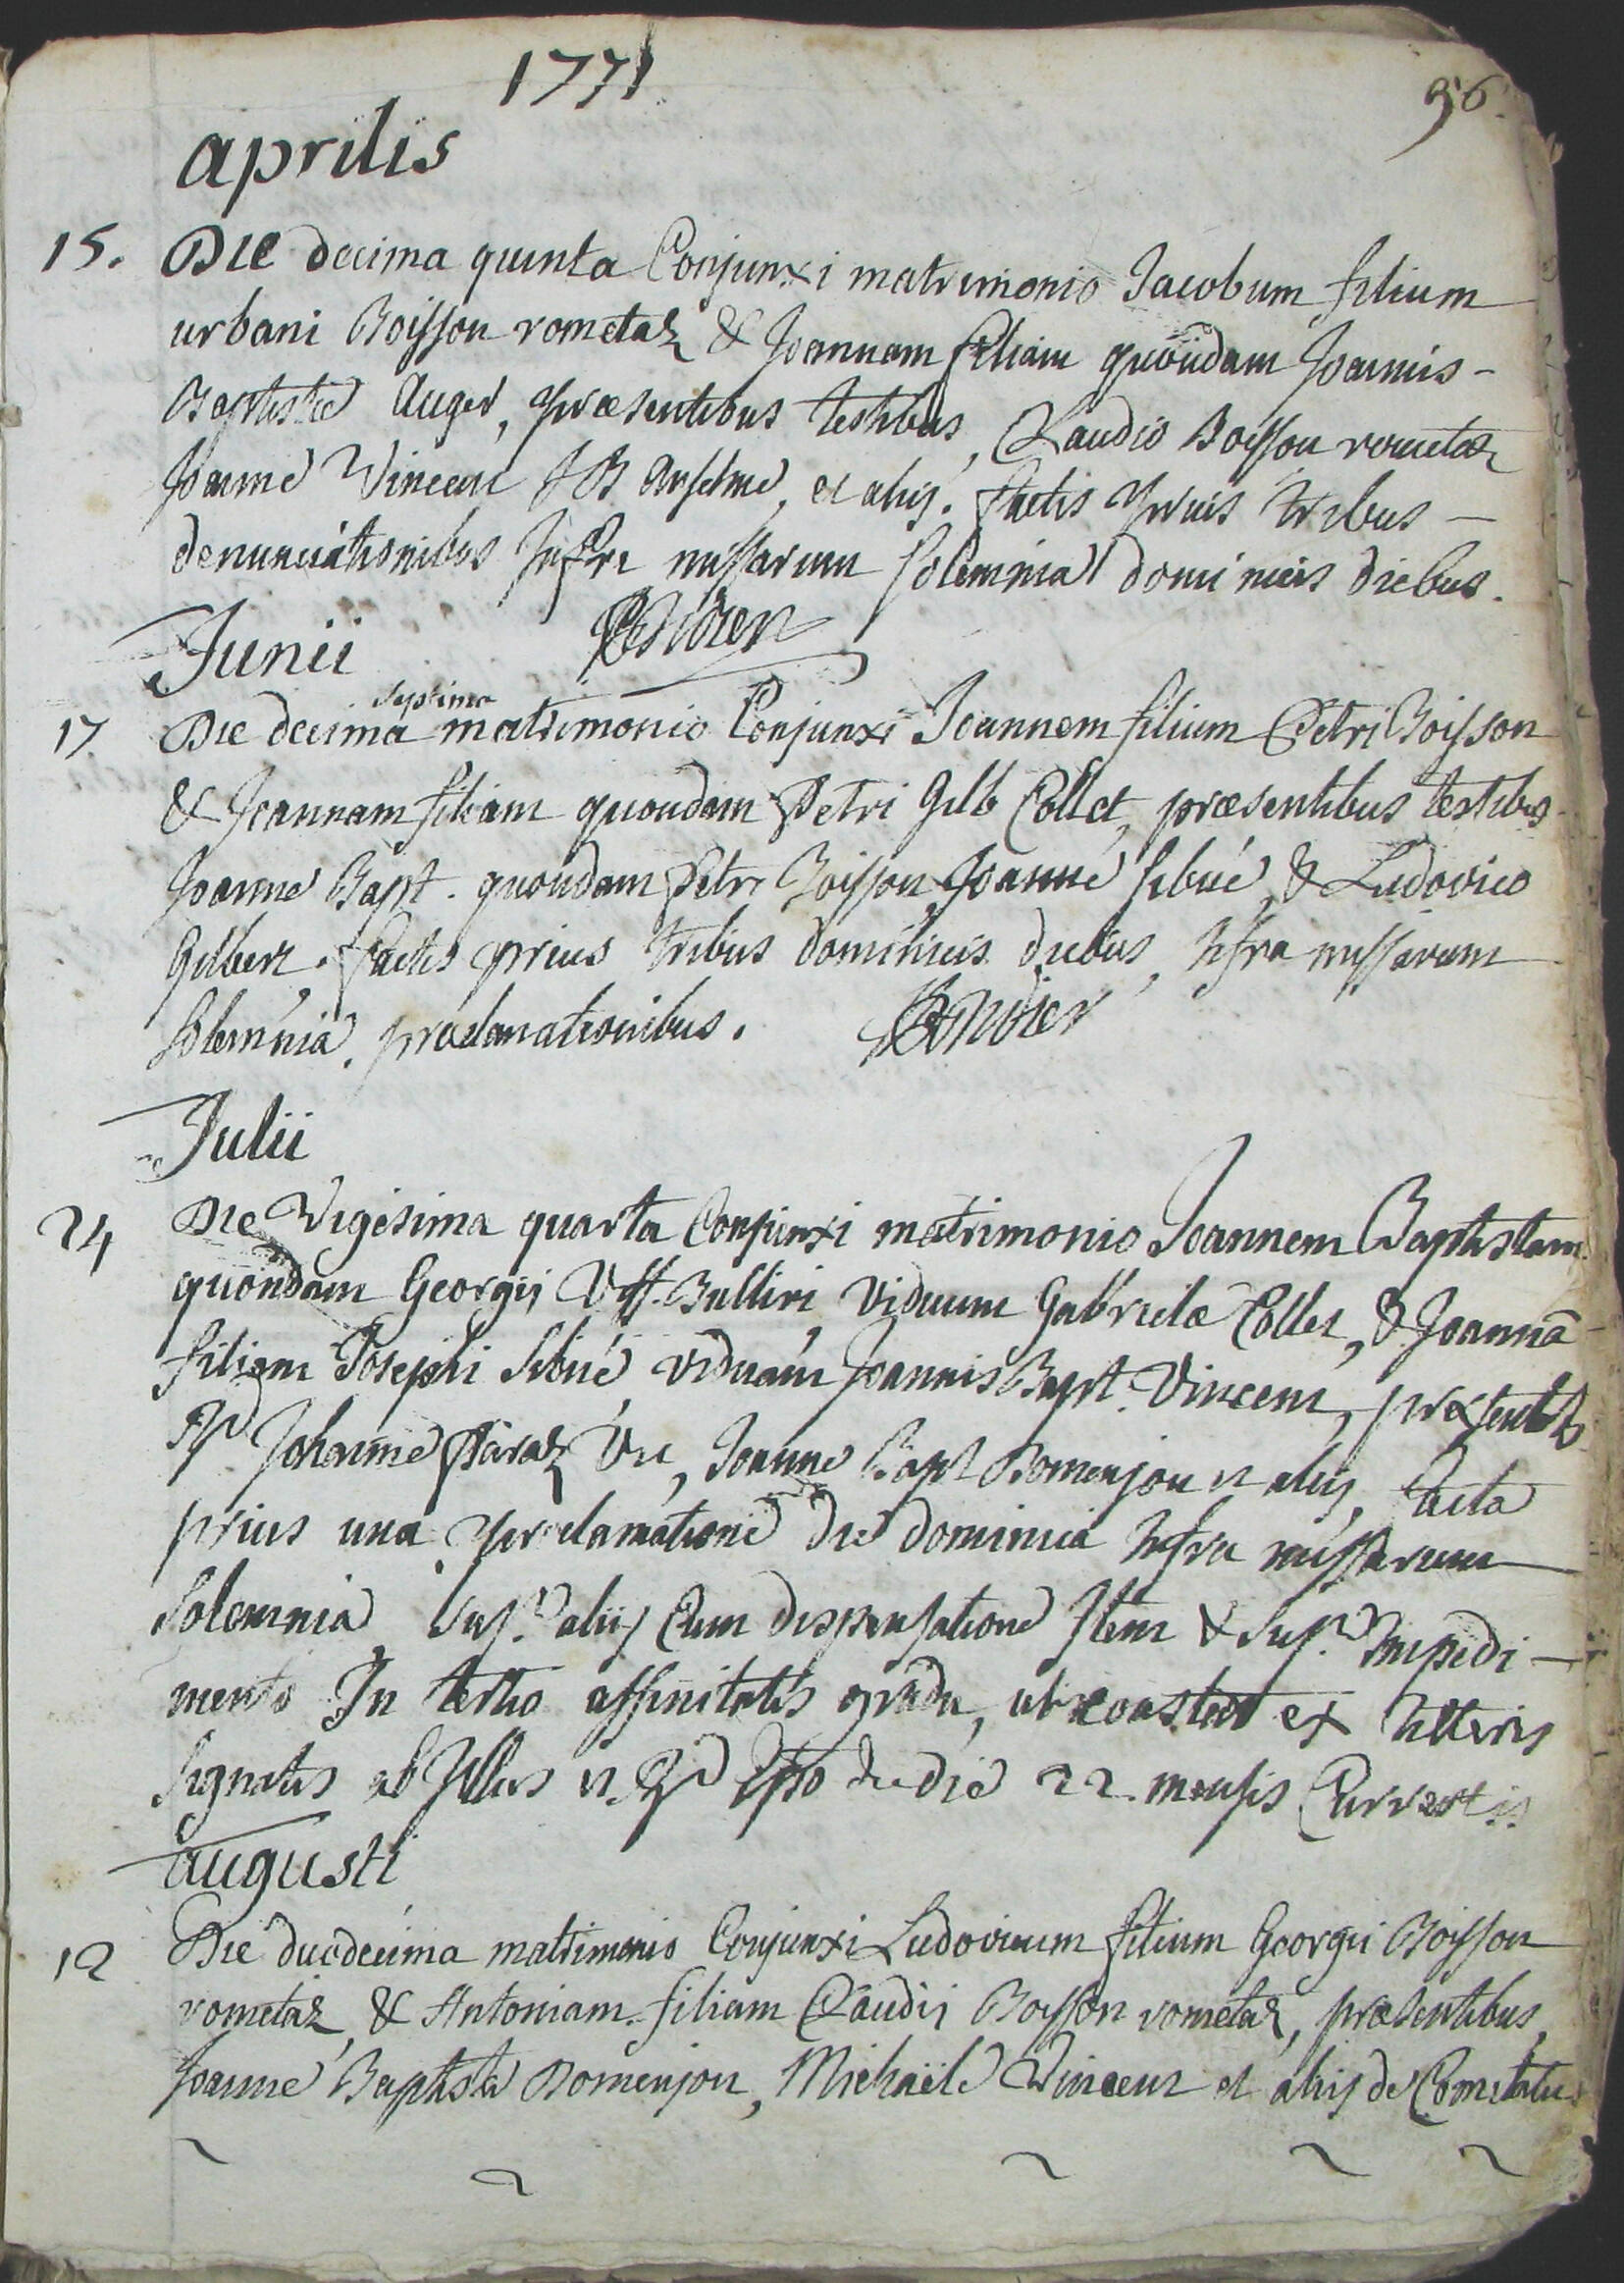 1771
96.
aprilis
15. Die decima quinta Conjunxi matrimonio Jacobum filium
urbani Boisson rometaz & Joannam filiam quondam Joannis -
Baptistæ Auger, præsentibus testibus, Claudio Boisson rometaz
Joanne Vincent J B Anselme, et alijs. factis prius tribus -
denunciationibus Infra missarum solemnia dominicis diebus.
Junii
septima
17 Die decima matrimonio Conjunxi Joannem filium Petri Boisson
& Joannam filiam quondam Petri Gilb Collet, præsentibus testibus
Joanne Bapt. quondam Petri Boisson, Joanne Sibué, & Ludovico
Gilbert. factis prius tribus dominicis diebus, Infra missarum
Solemnia, proclamationibus.
Julii
24 Die Vigesima quarta Conjunxi matrimonio Joannem Baptistam
quondam Georgij Vff. Bulliri, viduum Gabrielæ Collet, & Joannā
filiam Josephi Sibué, viduam Joannis Bapt. Vincent, præsentib
Johanne Joanne Bapt Domenjou et alijs, facta
prius una proclamatione die dominica Infra missarum
Solemnia, sup. alijs Cum dispensatione Item & sup. Impedi -
mento In tertio affinitatis gradu, ut constat ex litteris
signatis ab Illus et die 22. mensis Currentis
augusti
12 Die duodecima matrimonio Conjunxi Ludovicum filium Georgii Boisson
rometaz, & Antoniam filiam Claudii Boisson rometaz, præsentibus,
Joanne Baptista Domenjou, Michaële Vincent et alijs de Comitatu